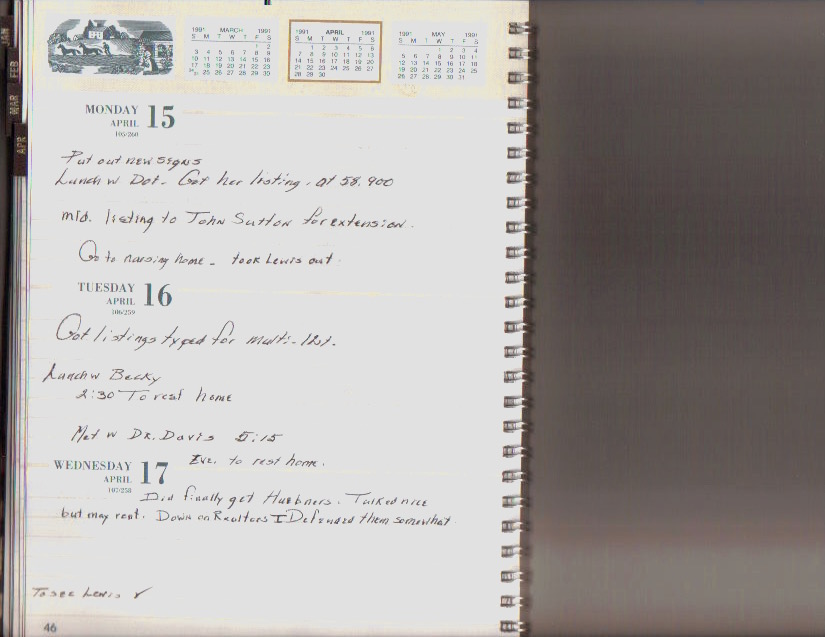 JAN
FEB
MAR
APR
1991 MARCH 1991
S M T W T F S
1 2
3 4 5 6 7 8 9
10 11 12 13 14 15 16
17 18 19 20 21 22 23
24/31 25 26 27 28 29 30
1991 APRIL 1991
S M T W T F S
1 2 3 4 5 6
7 8 9 10 11 12 13
14 15 16 17 18 19 20
21 22 23 24 25 26 27
28 29 30
1991 MAY 1991
S M T W T F S
1 2 3 4
5 6 7 8 9 10 11
12 13 14 15 16 17 18
19 20 21 22 23 24 25
26 27 28 29 30 31
MONDAY 15
APRIL
105/260
Put out new signs
Lunch w Dot. Got her listing. at 58,900
mld. listing to John Sutton for extension.
Go to nursing home - took Lewis out.
TUESDAY 16
APRIL
106/259
Got listings typed for multi-list.
Lunch w Becky
2:30 To rest home
Met w Dr. Davis 5:15
Eve. to rest home.
WEDNESDAY 17
APRIL
107/258
Did finally get Huebners. Talked nice
but may rent. Down on Realtors I Defended them somewhat.
To see Lewis ✓
46